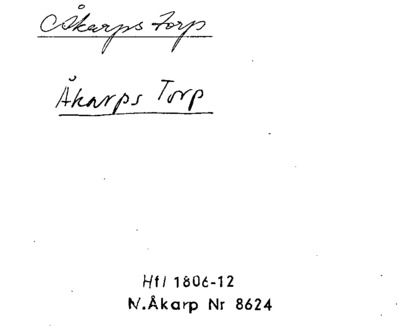 Åkarps Torp
Åkarps Torp
Hfl 1806-12
N.Åkarp Nr 8624